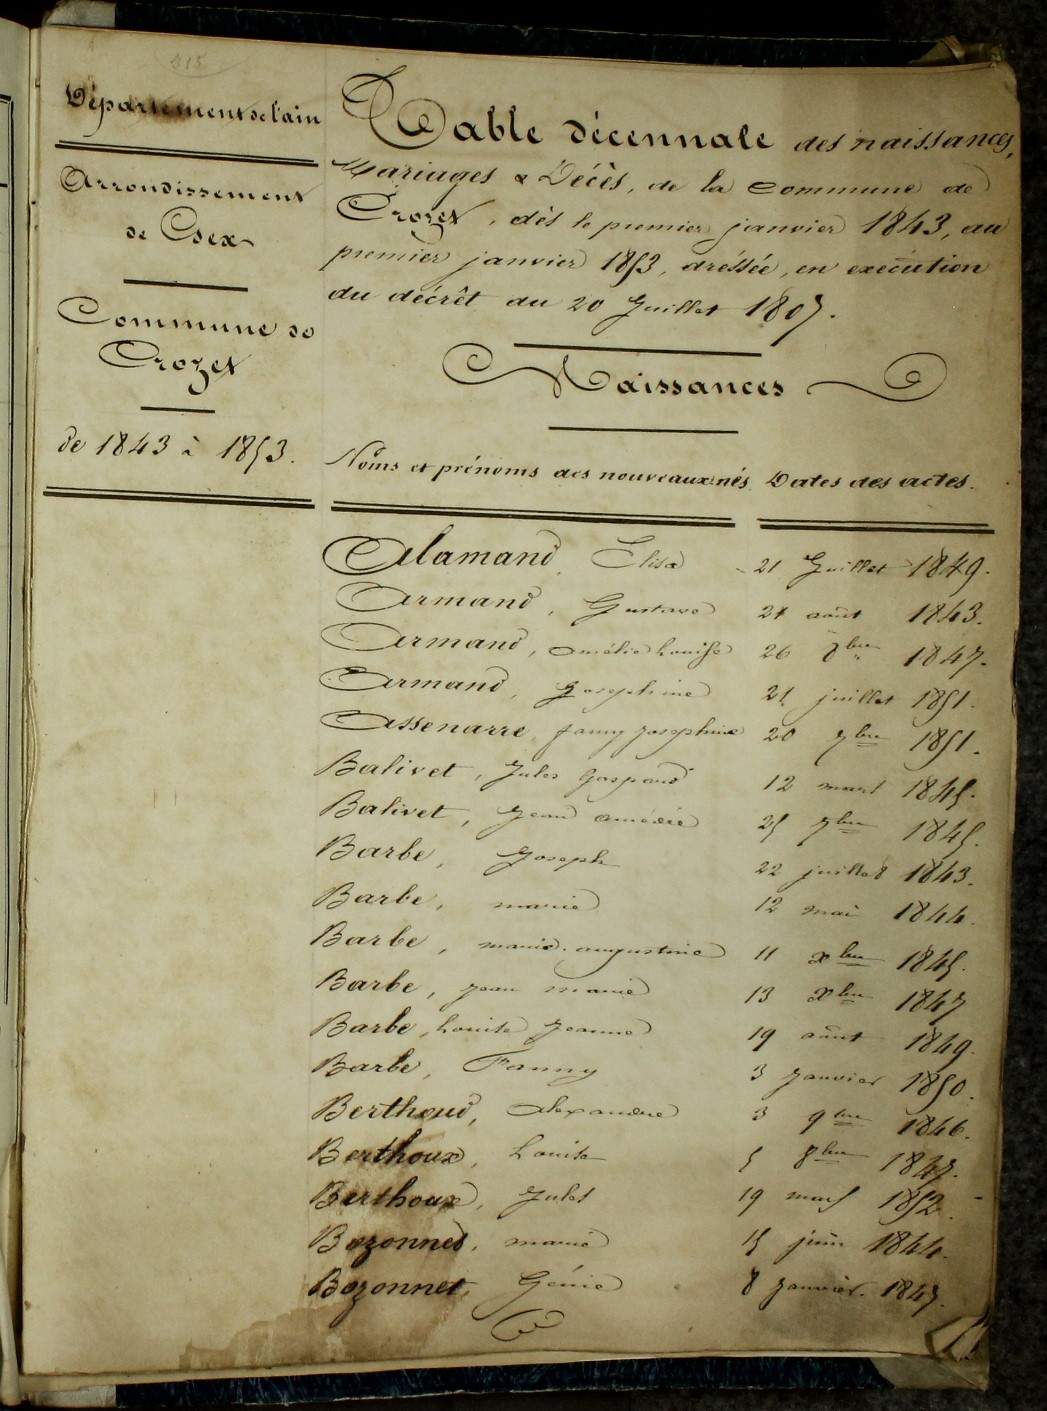 Département de l'ain
Arrondissement
de Gex
Commune de
Crozet
de 1843 à 1853.
Table décennale des naissances,
Mariages & Décès, de la commune de
Crozet, dès le premier janvier 1843, au
premier janvier 1853, dréssée, en exécution
du décrêt du 20 Juillet 1807.
Naissances
Noms et prénoms des nouveaux nés Dates des actes.
Alamand, Elisa 21 Juillet 1849.
Armand, Gustave 21 août 1843.
Armand, amélie Louise 26 8bre 1847.
Armand, Josephine 21 juillet 1851.
Assenarre, fanny josephine 20 7bre 1851.
Balivet, Jules Gaspard 12 mars 1845.
Balivet, Jean amédée 25 7bre 1845.
Barbe, Joseph 22 juillet 1843.
Barbe, marie 12 mai 1844.
Barbe, marie augustine 11 xbre 1845.
Barbe, jean marie 13 xbre 1847
Barbe, Louise Jeanne 19 août 1849.
Barbe, Fanny 3 Janvier 1850.
Berthoud, alexandre 3 9bre 1846.
Berthoux, Louise 5 8bre 1847.
Berthoux, Jules 19 mars 1852.
Bozonnet, marie 15 juin 1844.
Bozonnet, Génie 8 Janvier 1847.